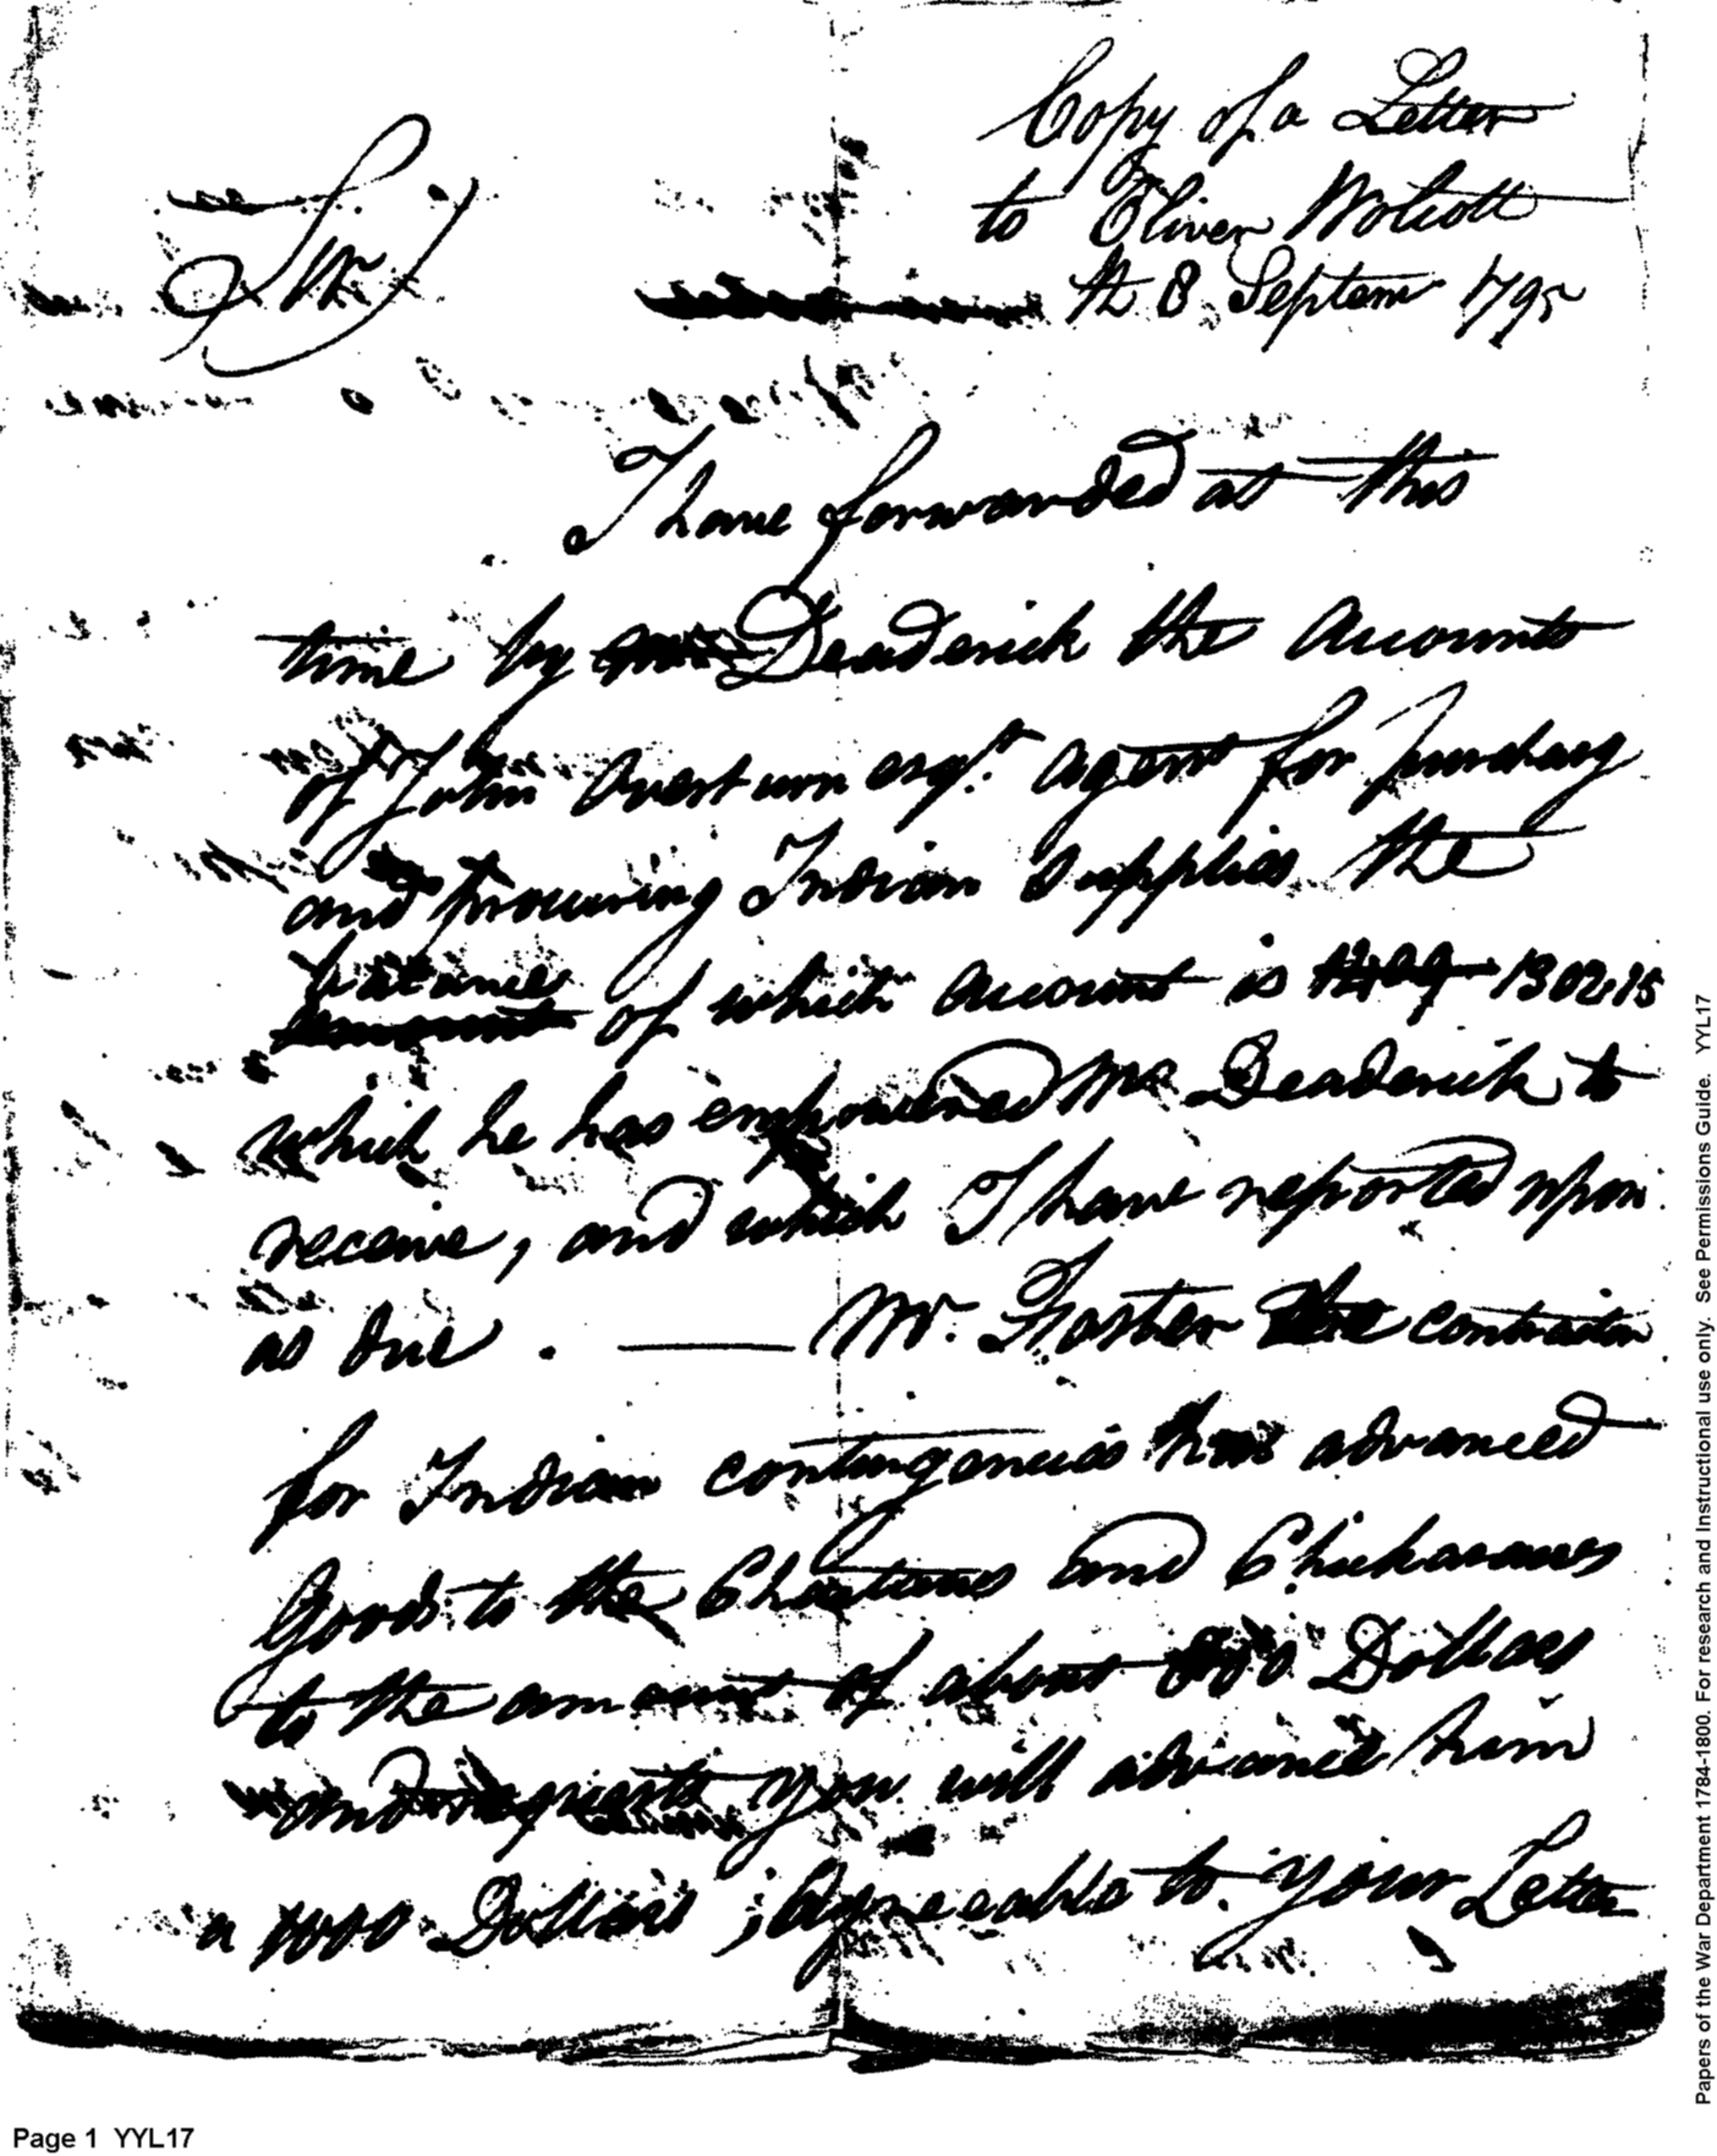 Copy of a Letter
to Oliver Wolcott
8 Septem 1795
Sir
I have forwarded at this
time by Deaderick the Accounts
of John Overtown esqr. agent for purchasg
and procuring Indian Supplies the
balance
amount of which Account is 1302.15
which he has empowered Mr Deaderick to
receive, and which I have reported upon
as due. — Mr. Foster the contractor
for Indian contingencies has advanced
Goods to the Choctaws and Chickasaws
to the amount of about 800 Dollars
and requests you will advance him
a 1000 Dollars; Agreeable to your Letter
Page 1 YYL17
Papers of the War Department 1784-1800. For research and Instructional use only. See Permissions Guide. YYL17